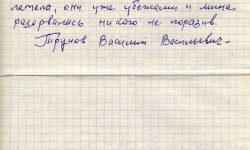 летела, они уже убежали и мина
разорвалась никого не поразив.
Трунов Василий Васильевич-